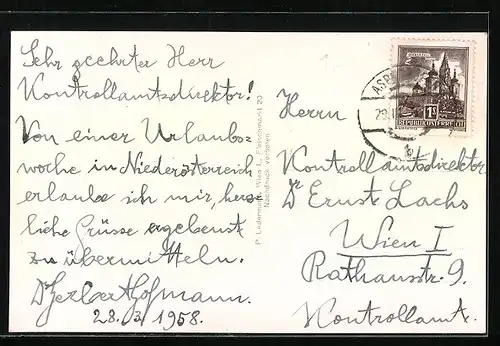 Sehr geehrter Herr
Kontrollamtsdirektor!
Von einer Urlaubs=
woche in Niederösterreich
erlaube ich mir, herz=
liche Grüsse ergebenst
zu übermitteln.
Dr Herbert Hofmann.
28. 3. 1958.
P. Ledermann, Wien I., Fleischmarkt 20
Nachdruck verboten
1S
REPUBLIK ÖSTERREICH
ASP
Herrn
Kontrollamtsdirektor
Dr Ernst Lachs
Wien I
Rathausstr. 9.
Kontrollamt.